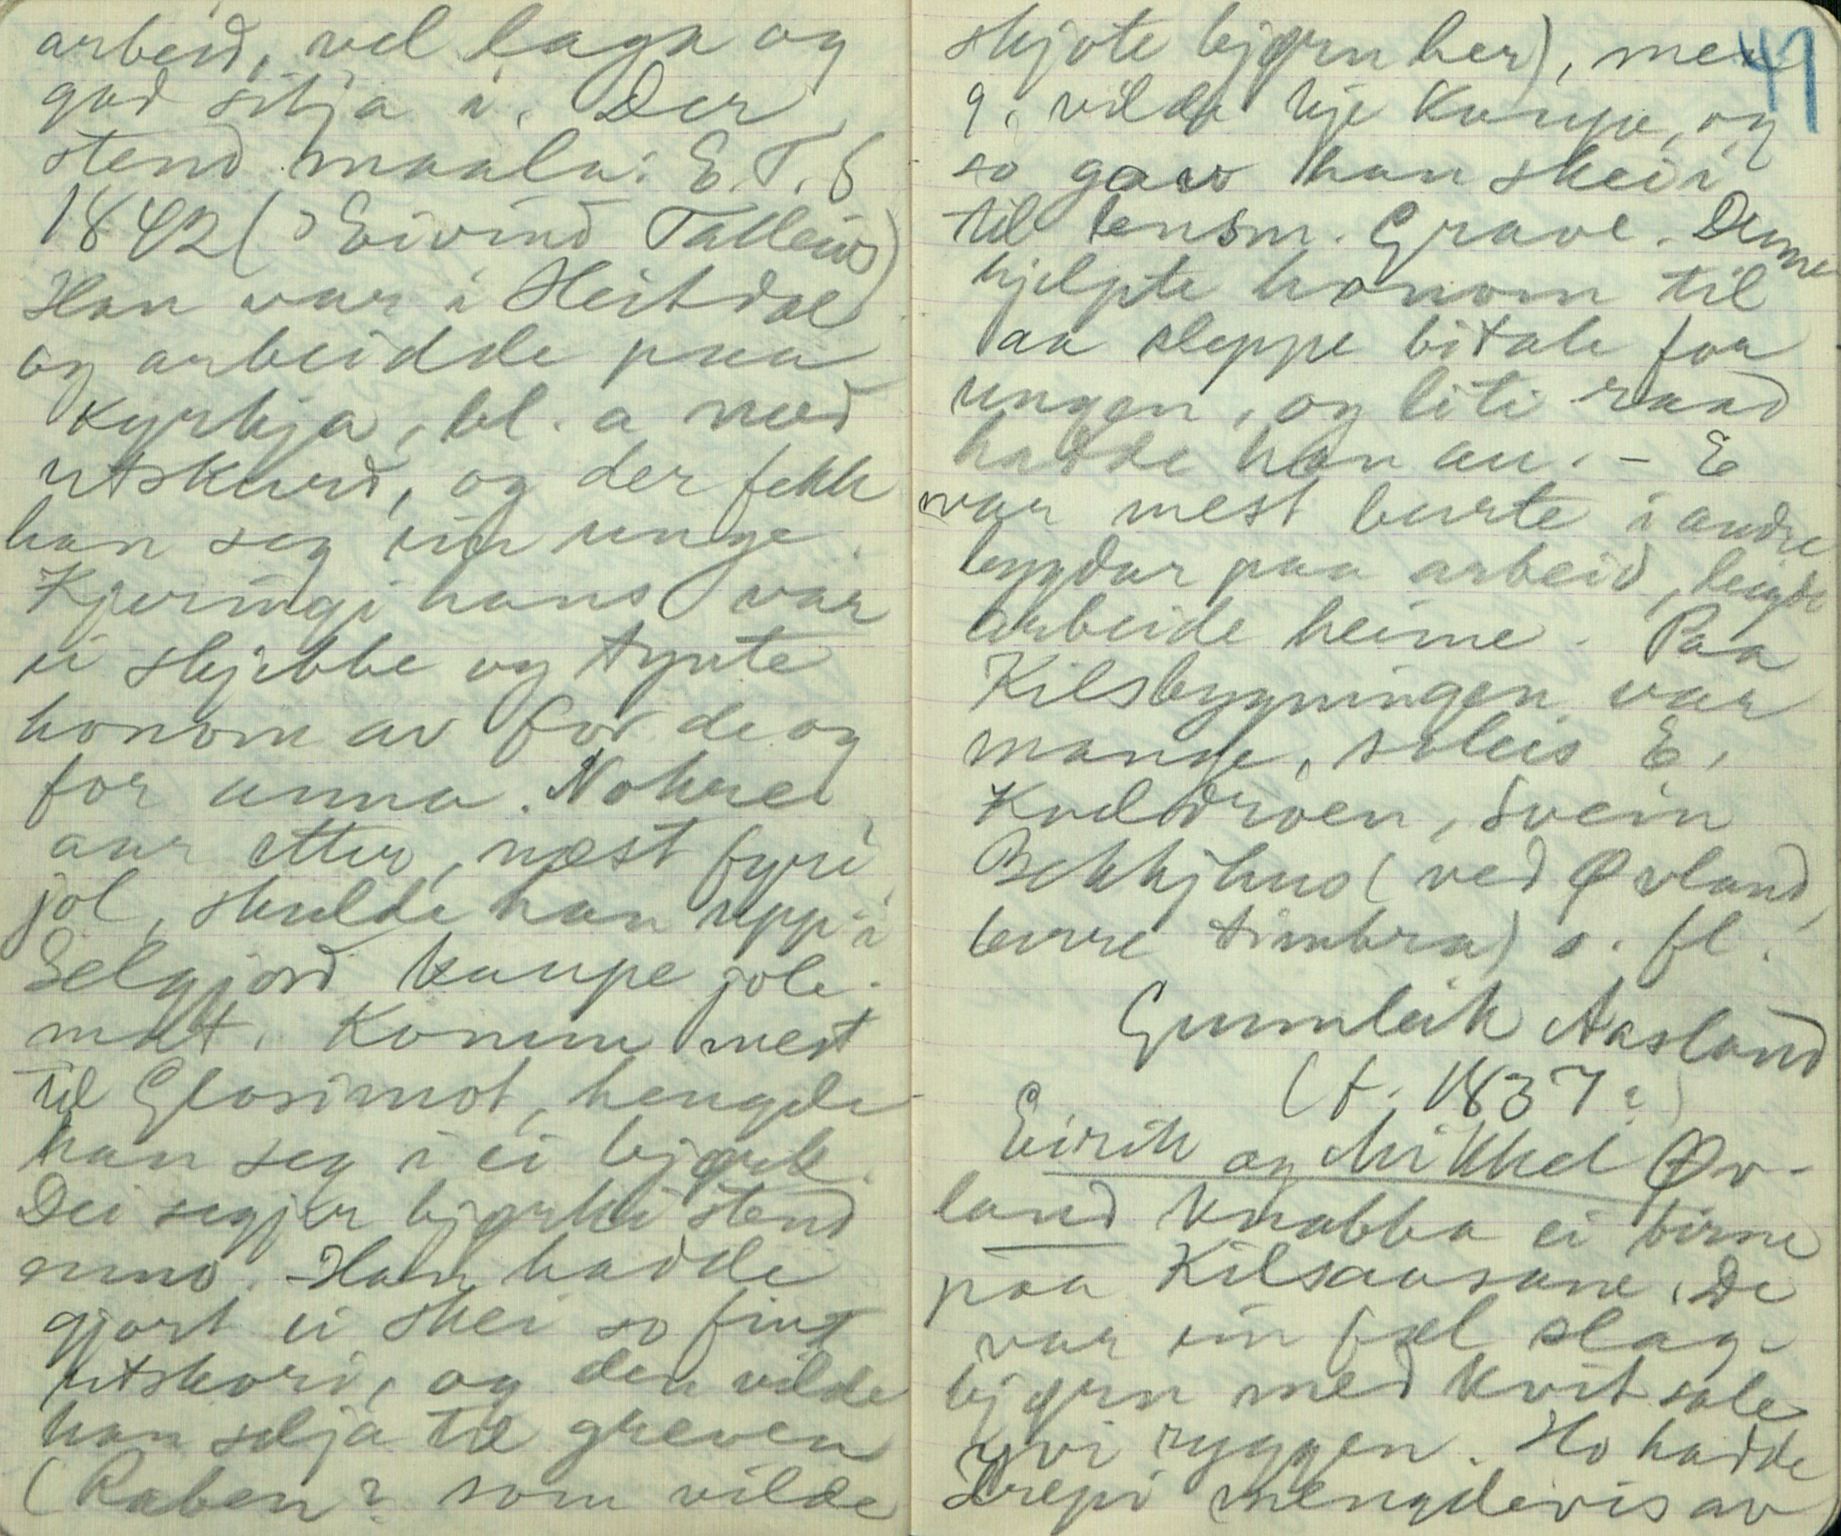 arbeid, vel laga og
god sitja i. Der
stend maala: E. T. S
1842 (? Eivind Talleivs)
Han var i Heitdal
og arbeidde paa
kyrkja, bl. a med
utskurd, og der fekk
han seg ein unge.
Kjeringi hans var
ei skjebbe og tynte
honom av for de og
for anna. Nokre
aar etter, næst fyri
jol, skulde han upp i
Selgjord kaupe jole-
mat. Komen mest
til Glosimot, hengde
han seg i ei bjørk.
Dei segjer bjørki stend
enno. Han hadde
gjort ei skei so fint
utskori, og den vilde
han selja til greven
(Raben? som vilde
skjote bjørn her), men
g. vilde kje kaupe, og
so gav han skei i
til lensm. Grave. Denne
hjelpte honom til
aa sleppe bitale for
ungen, og liti raad
hadde han au. - E
var mest burte i andre
bygdar paa arbeid,
arbeide heime. Paa
Kilsbygningen var
mange, soleis E.
Kvddroen, Svein
Bekkjhus (ved Øvland,
berre timbra) o. fl.
Gunnleik Aasland
(f. 1837?)
Eirik og Mikkel Øv-
land knabba ei binne
paa Kilsaasane. De
var ein fæl slag-
bjørn med kvit sale
yvi ryggen. Ho hadde
drepi mengdevis av
47